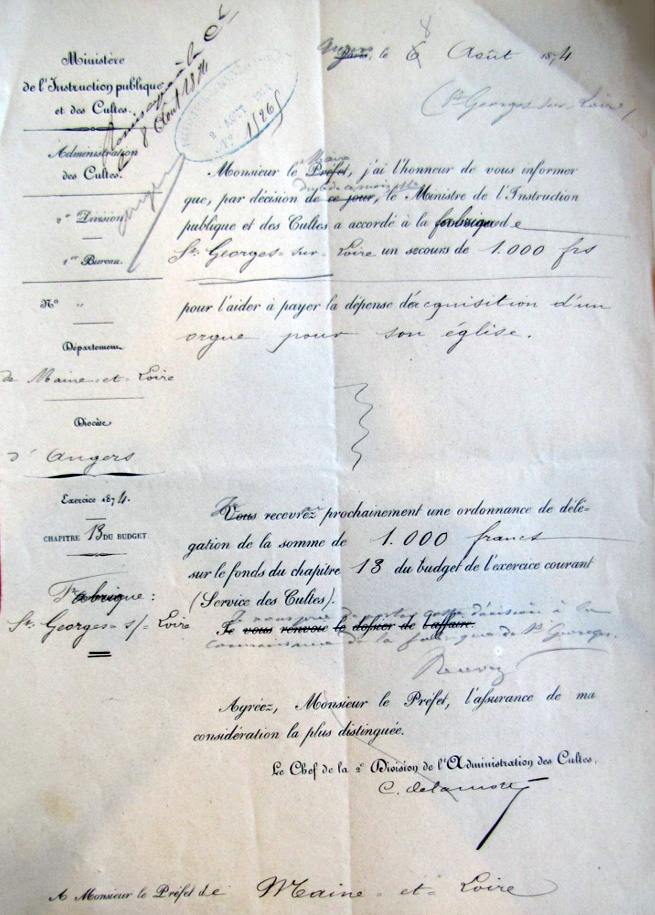 Ministère
de l'Instruction publique
et des Cultes.
Administration
des Cultes.
2e Division
1er Bureau.
No "
Département
de Maine-et-Loire
Diocèse
d'Angers
Exercice 1874.
CHAPITRE 13 DU BUDGET
Fabrique :
St. Georges-s/-Loire
8 Août 1874
1526
Angers Paris, le 6 8 Août 1874
(St Georges-sur-Loire)
Monsieur le Préfet, j'ai l'honneur de vous informer
que, par décision de ce jour, le Ministre de l'Instruction
publique et des Cultes a accordé à la fabrique de
St. Georges-sur-Loire un secours de 1.000 frs
pour l'aider à payer la dépense d'acquisition d'un
orgue pour son église.
Vous recevrez prochainement une ordonnance de délé-
gation de la somme de 1.000 francs
sur le fonds du chapitre 13 du budget de l'exercice courant
(Service des Cultes).
Je vous renvoie le dossier de l'affaire.
Je vous prie de porter cette décision à la
connaissance de la fabrique de St Georges.
Agréez, Monsieur le Préfet, l'assurance de ma
considération la plus distinguée.
Le Chef de la 2e Division de l'Administration des Cultes.
C. delamotte
A Monsieur le Préfet de Maine-et-Loire